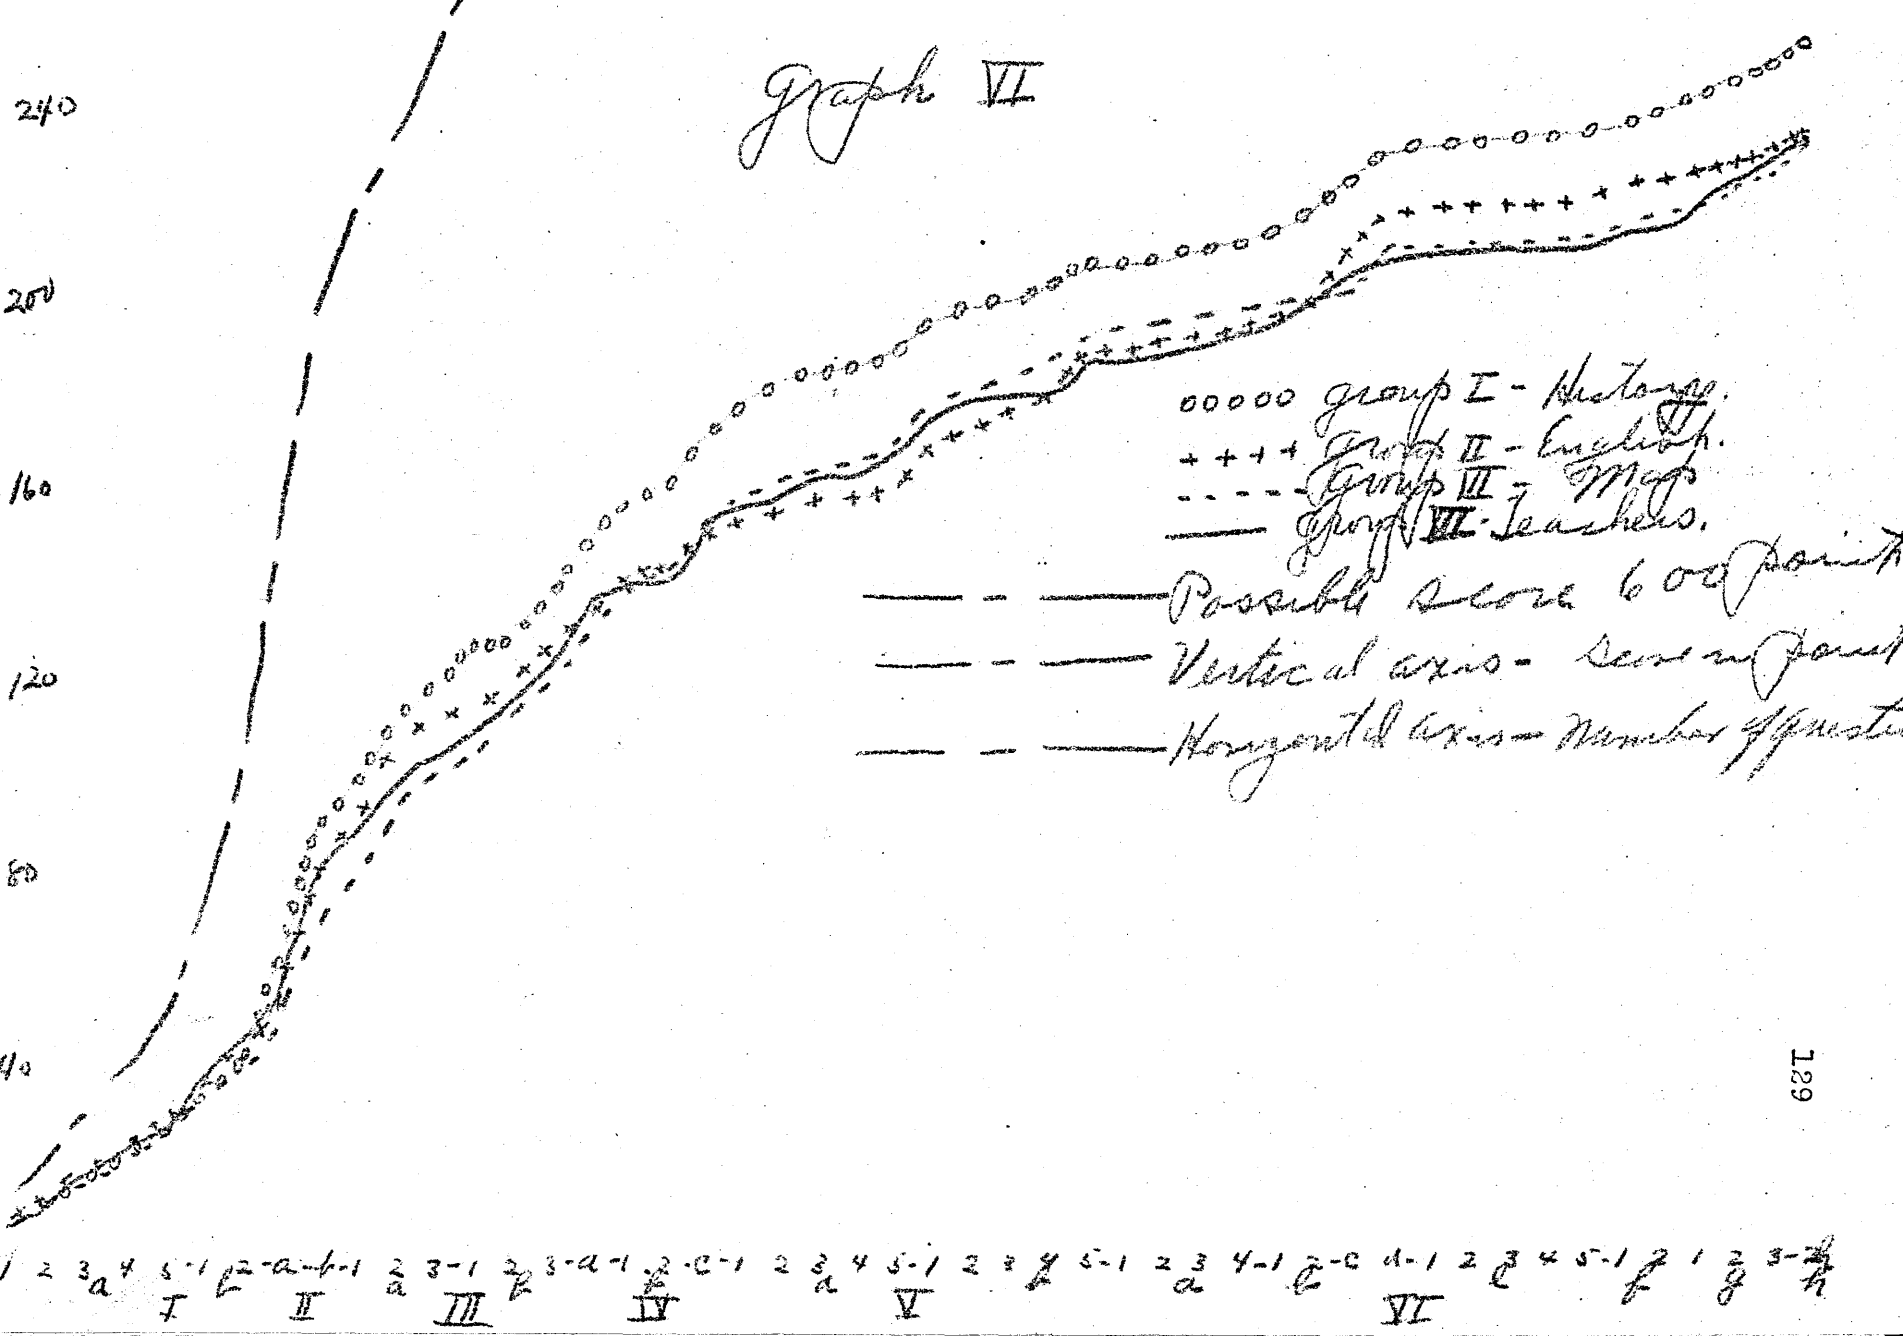 Graph VI
240
200
160
120
80
40
ooooo group I - History.
++++ Group II - English.
----- Group III - Maps
—— Group VII - Teachers.
—— - —— Possible score 600 point
—— - —— Vertical axis - Score in point
—— - —— Horizontal axis - Number of questi
129
1 2 3 4 5-1 2-a-b-1 2 3-1 2 3-a-1 2-c-1 2 3 4 5-1 2 3 4 5-1 2 3 4-1 2-c d-1 2 3 4 5-1 2 1 2 3-
I II III IV V VI